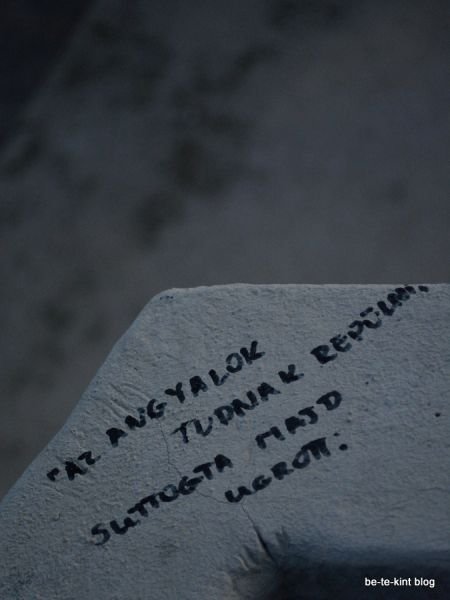 "AZ ANGYALOK
TUDNAK REPÜLNI,
SUTTOGTA MAJD
UGROTT.
be-te-kint blog